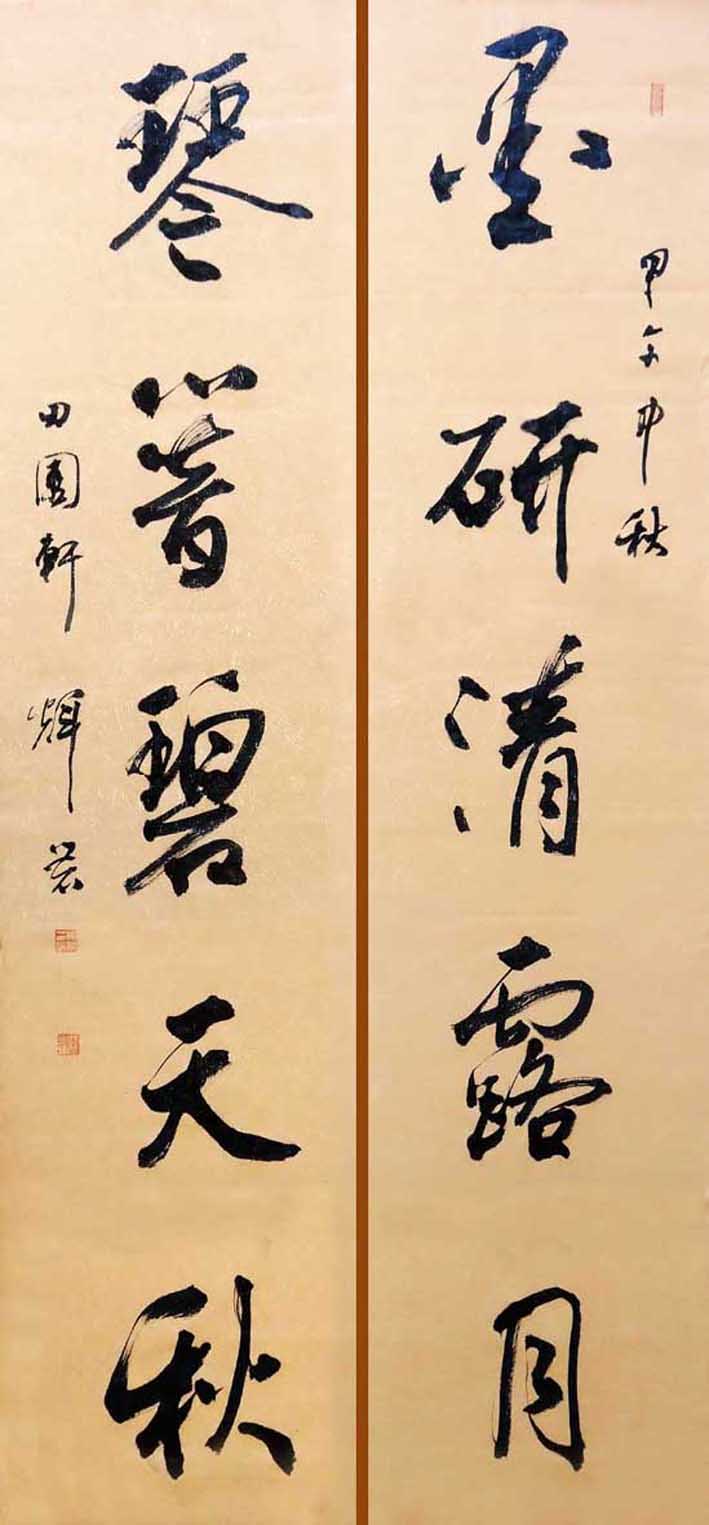 甲午中秋
墨研清露月
琴響碧天秋
田園軒 煇